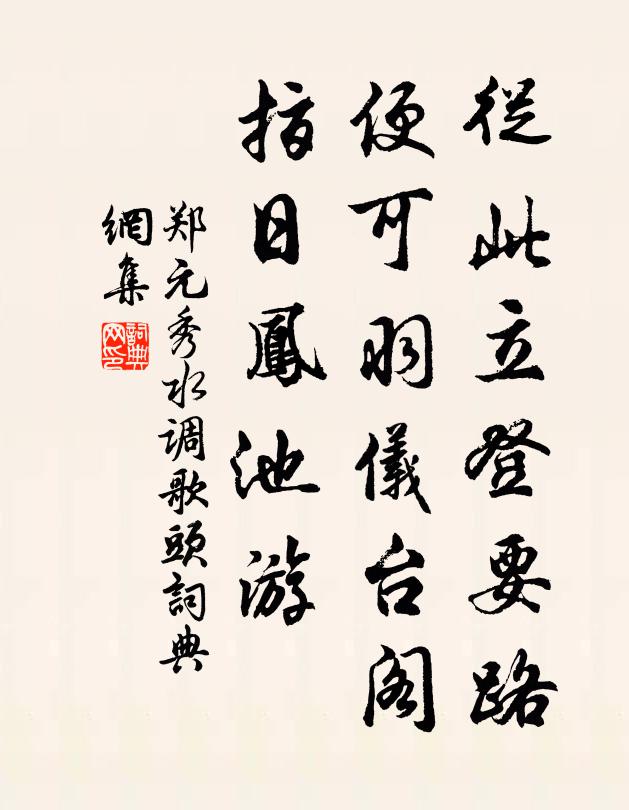 從此立登要路
便可羽儀台阁
指日鳳池游
郑元秀水调歌頭詞典
網集
詞典
网印